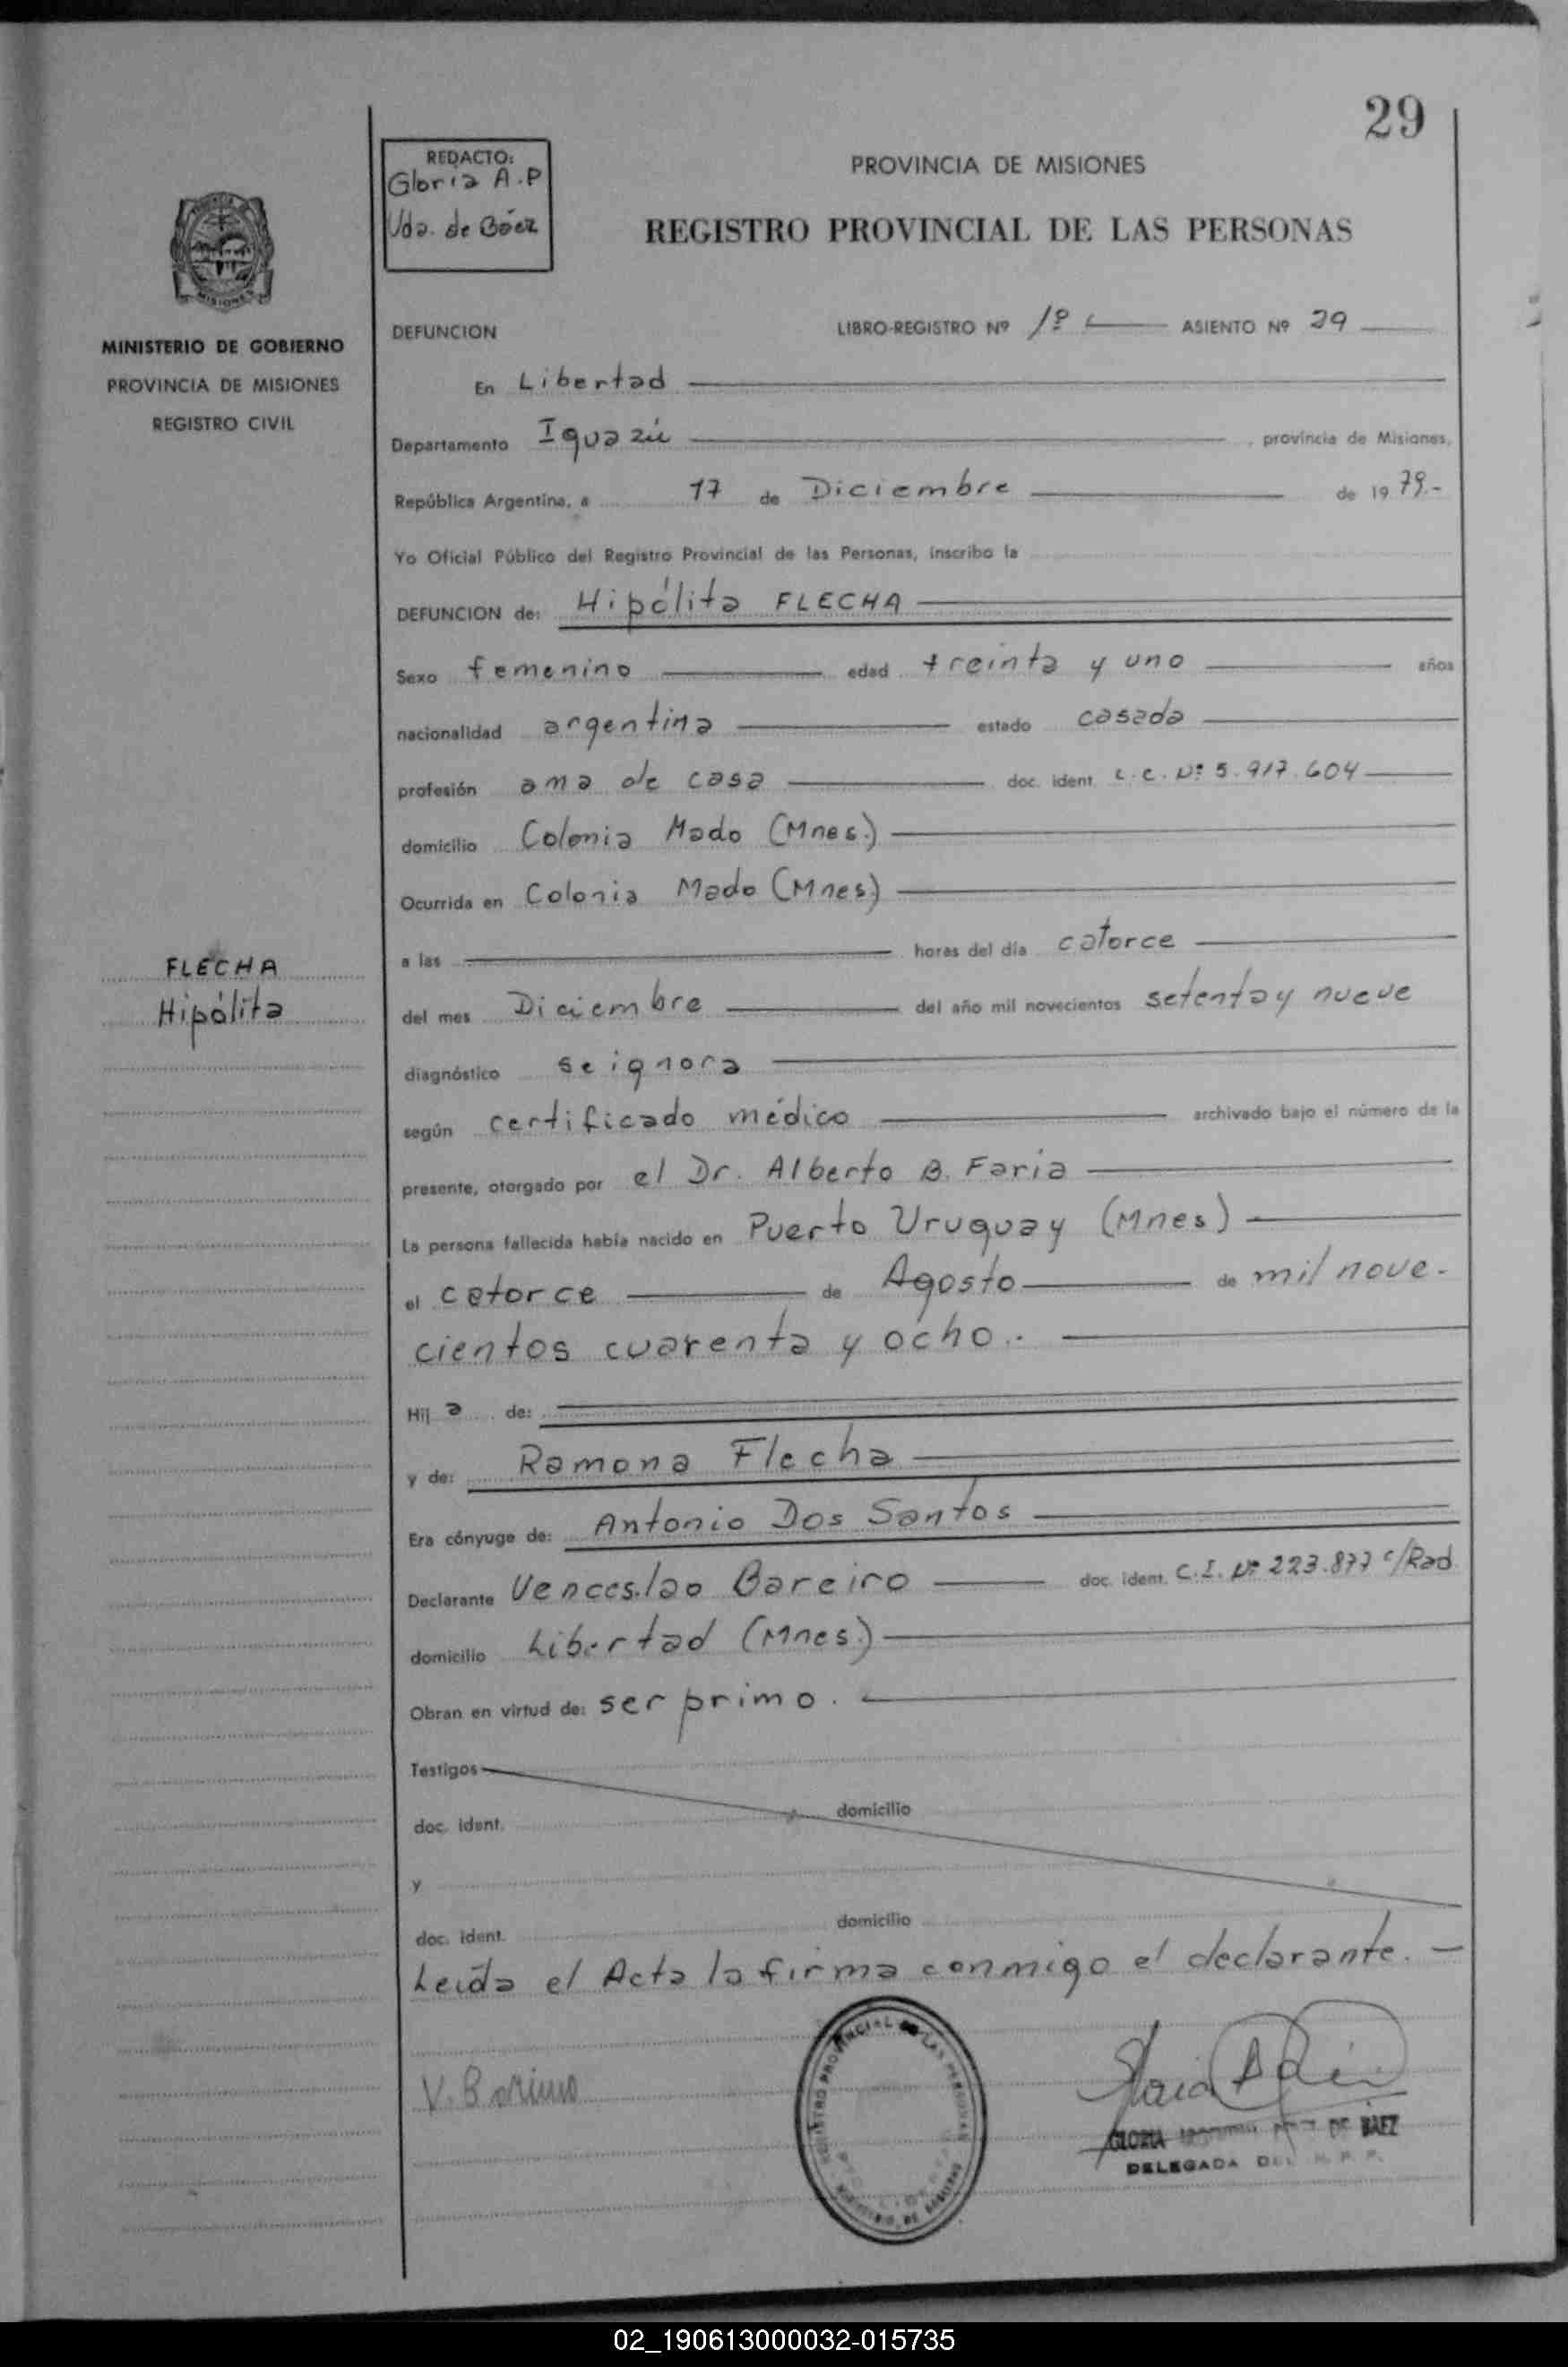 29
REDACTO:
Gloria A.P
Vda. de Báez
PROVINCIA DE MISIONES
REGISTRO PROVINCIAL DE LAS PERSONAS
MISIONES
MINISTERIO DE GOBIERNO
PROVINCIA DE MISIONES
REGISTRO CIVIL
DEFUNCION
LIBRO-REGISTRO Nº 1º ASIENTO Nº 29
En Libertad
Departamento Iguazú , provincia de Misiones,
República Argentina, a 17 de Diciembre de 19 79.-
Yo Oficial Público del Registro Provincial de las Personas, inscribo la
DEFUNCION de: Hipólita FLECHA
Sexo femenino edad treinta y uno años
nacionalidad argentina estado casada
profesión ama de casa doc. ident. L.C. Nº 5.917.604
domicilio Colonia Mado (Mnes.)
Ocurrida en Colonia Mado (Mnes.)
a las horas del día catorce
FLECHA
Hipólita
del mes Diciembre del año mil novecientos setenta y nueve
diagnóstico se ignora
según certificado médico archivado bajo el número de la
presente, otorgado por el Dr. Alberto B. Faria
La persona fallecida había nacido en Puerto Uruguay (Mnes)
el catorce de Agosto de mil nove-
cientos cuarenta y ocho.-
Hij a de:
y de: Ramona Flecha
Era cónyuge de: Antonio Dos Santos
Declarante Venceslao Bareiro doc. ident. C.I. Nº 223.877 c/Rad
domicilio Libertad (Mnes.)
Obran en virtud de: ser primo.
Testigos
doc. ident. domicilio
y
doc. ident. domicilio
Leída el Acta la firma conmigo el declarante.-
REGISTRO PROVINCIAL DE LAS PERSONAS
GLORIA DE BAEZ
DELEGADA DEL R. P. P.
02_190613000032-015735